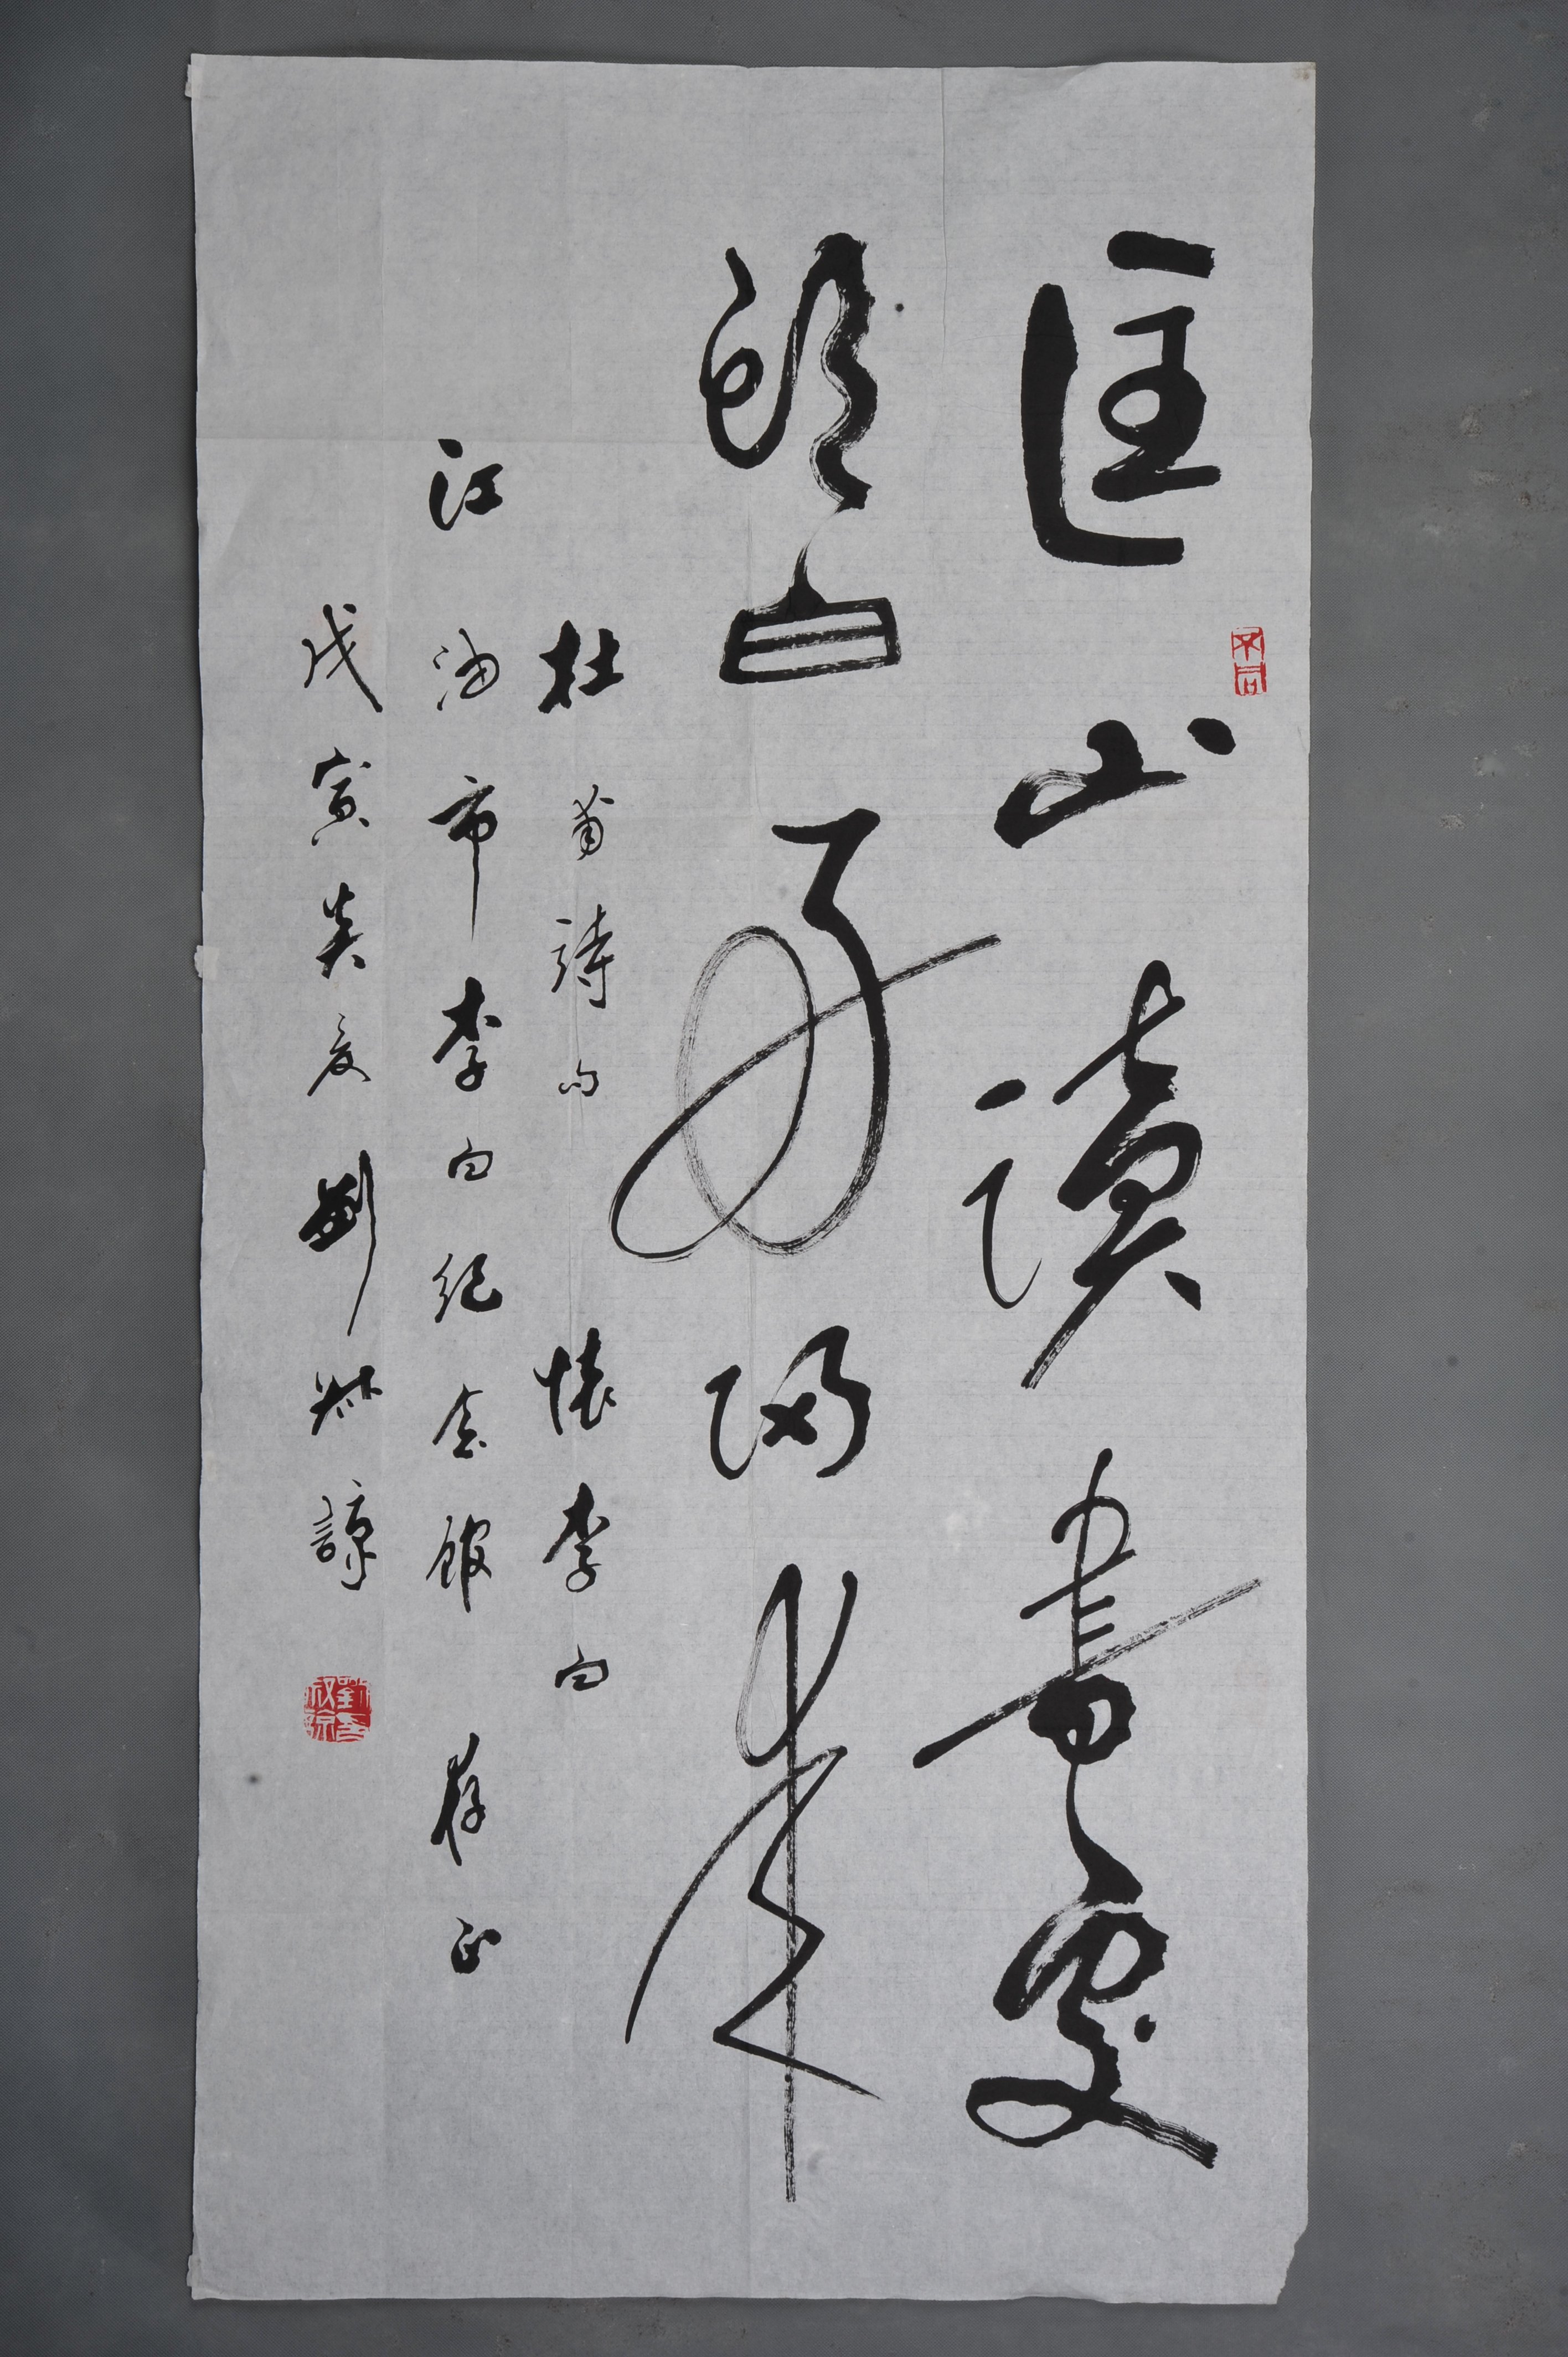 匡山讀書處
頭白好歸來
杜甫詩句 懷李白
江油市李白紀念館 存正
戊寅炎夏劉叔諒